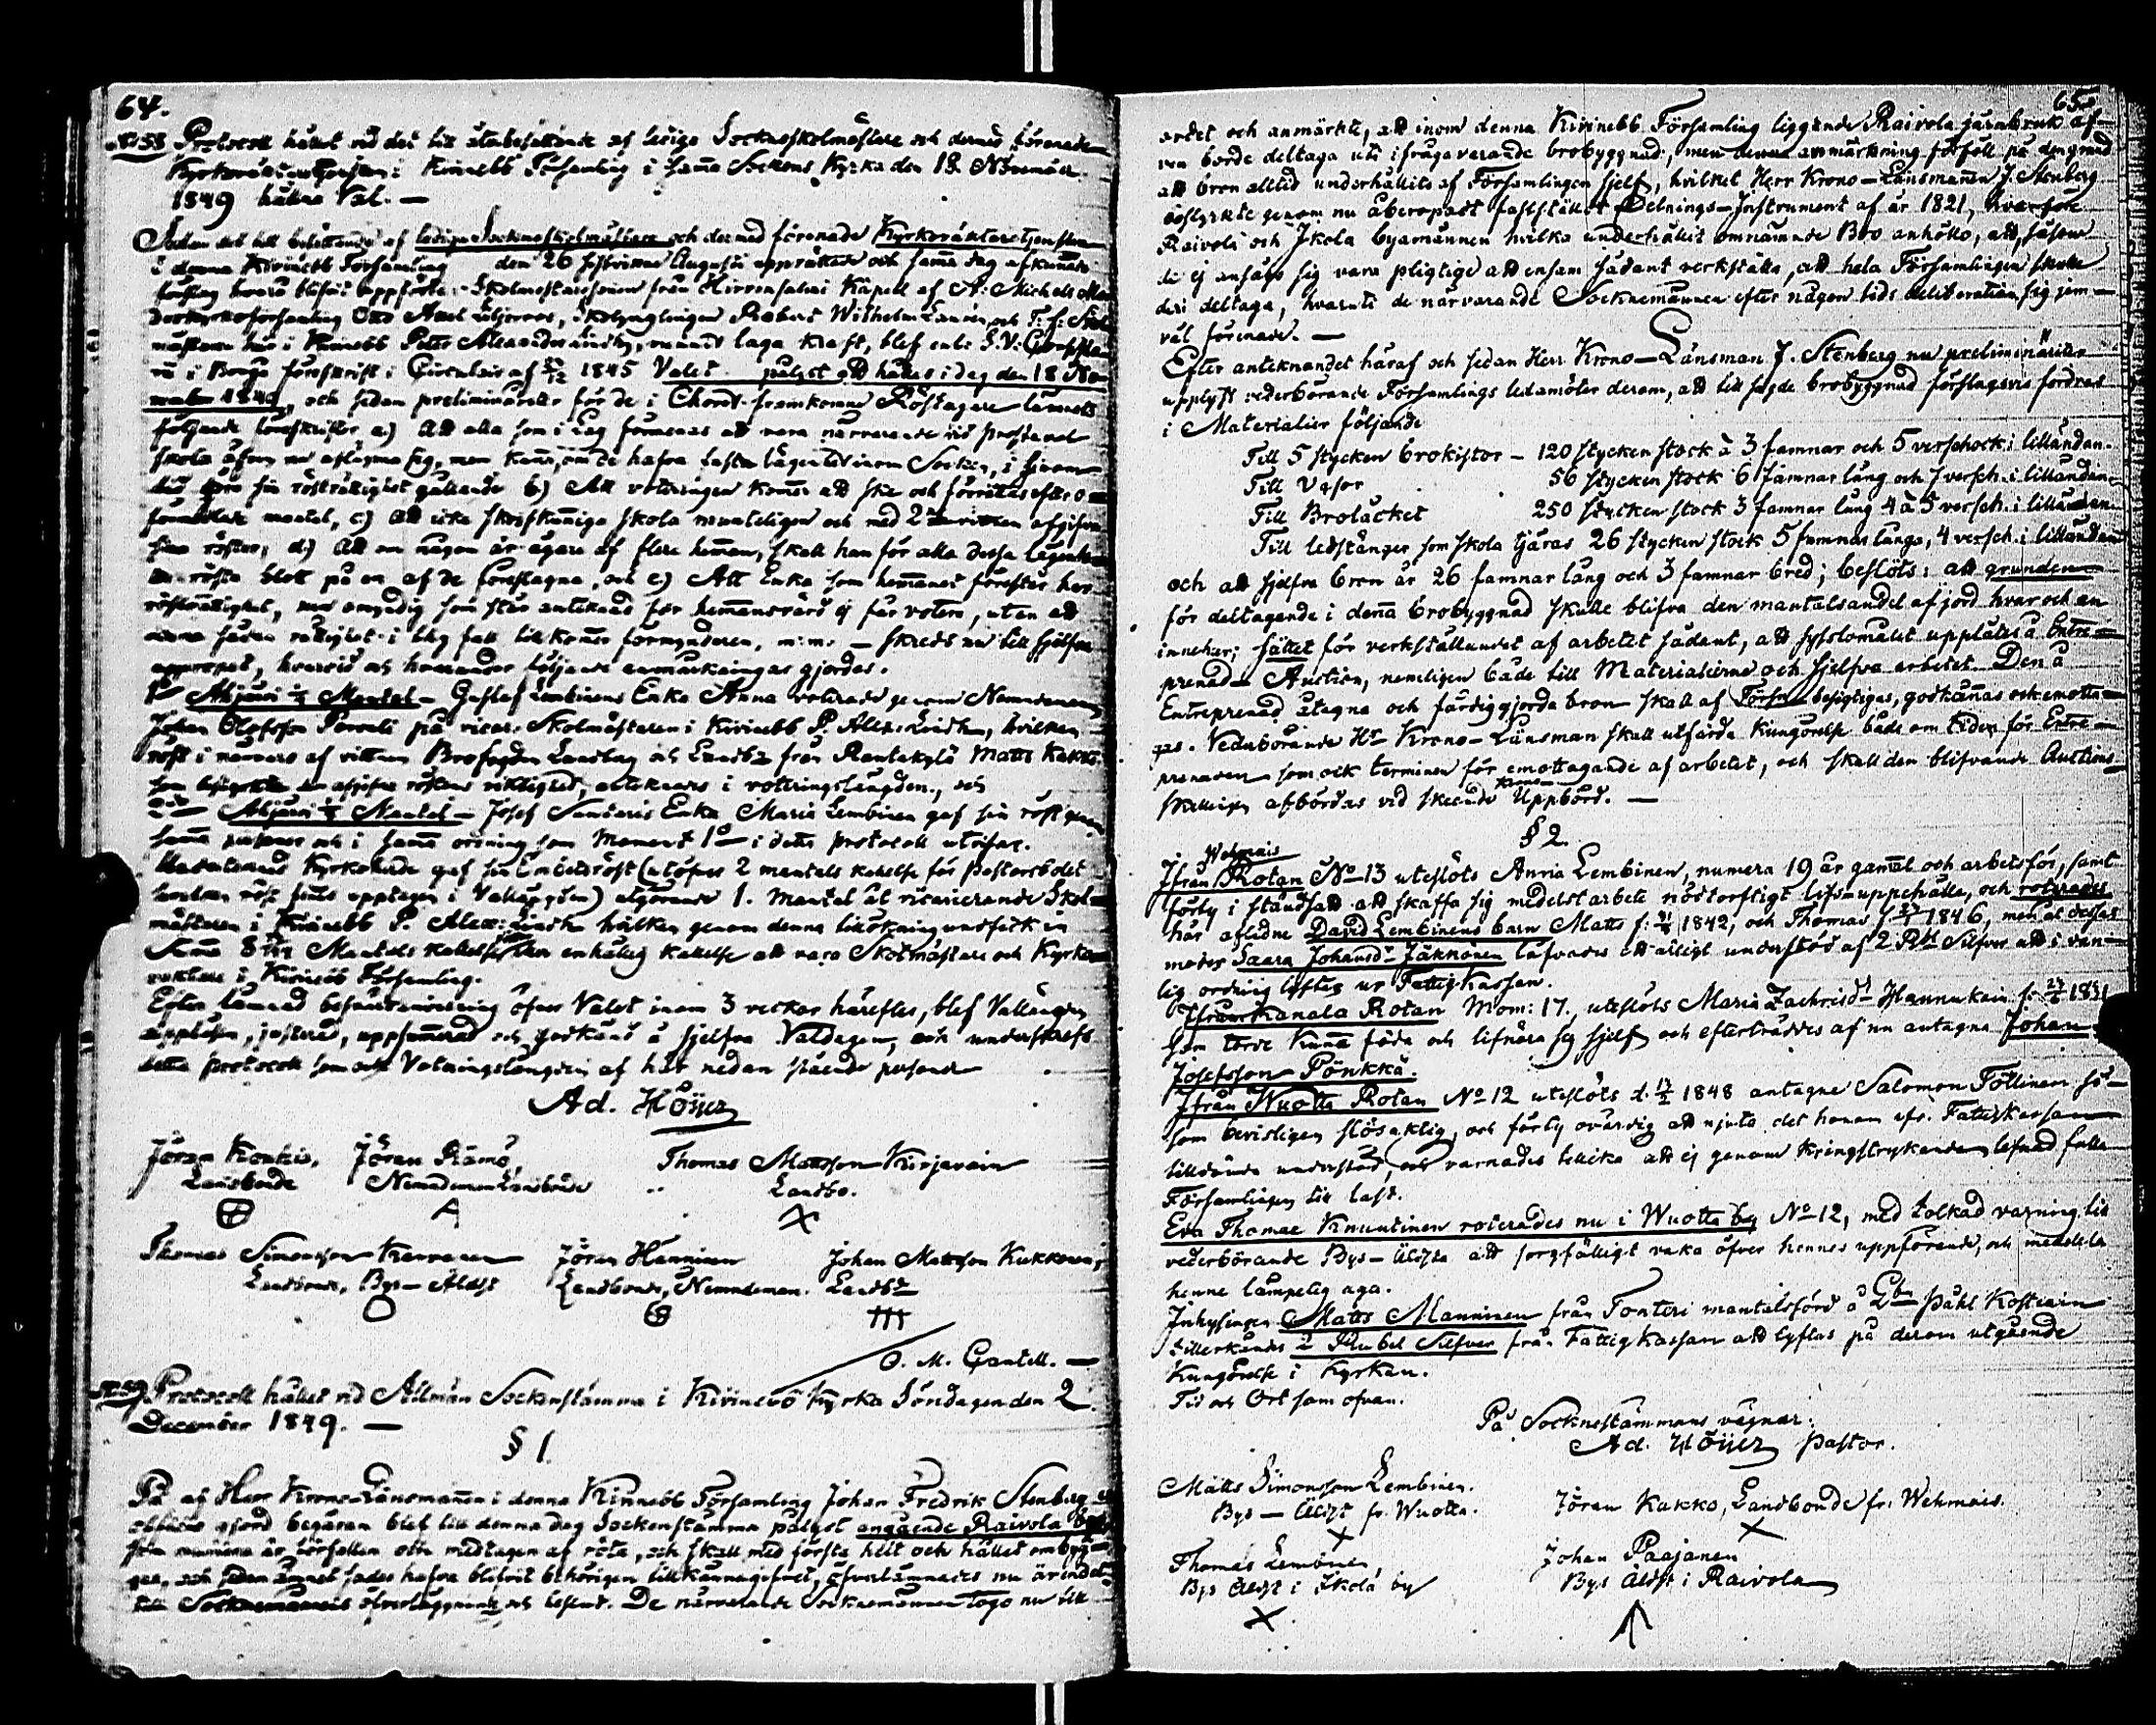 64.
№ 58 Protocoll hållet vid det till återbesättande af lediga Sockneskolmästare och dermed förenade
Kyrkoväktaretjensten i Kivinebb Församling i samma Sockens Kyrka den 18 November
1849 hållna Val. —
Sedan det till besättande af lediga Sockneskolmästare och dermed förenade Kyrkoväktaretjensten
i denna Kivinebb Församling den 26 sistvikne Augusti upprättade och samma dag afkunnade
förslag hvarå blifvit uppförde: Skolmästaresonen från Hirvensalmi Kapell af St. Michels Mo-
derkyrkoförsamling Otto Axel Liljeroos, Skolynglingen Robert Wilhelm Lannen och T. f. Skol-
mästaren här i Kivinebb Petter Alexander Lindh, vunnit laga kraft, blef enl. 
i Borgå föreskrift i Circulair af 1845 Valet pålyst att hållas i dag den 18 No-
vember 1849, och sedan preliminärviter för de i Choret framkomne Röstägare lämnats
följande föreskrifter a) Att alla som i Lag förmenas att vara närvarande vid prestaval
skola äfven nu aflägsna sig, men kunna, om de hafva fasta lägenheter inom Socken, i
göra sin rösträttighet gällande b) Att voteringen kommer att ske och förrättas efter o-
förmedlade mantal, c) Att icke skrifkunniga skola munteligen och med 2 vittnen afgifva
sina röster; d) Att om någon är ägare af flere hemman, skall han för alla dessa lägenhe-
ter rösta blott på en af de föreslagna, och e) Att Enka som hemmanet förestår har
rösträttighet, men omyndig som står antecknad för hemmansvård ej får votera, utan att
denna sådan rättighet i slikt fall tillkommer förmyndaren, m:m: — skreds nu till sjelfva
uppropet, hvarvid och hvarunder följande anmärkningar gjordes.
1o Ahjärvi ½ Mantal — Gustaf Lembinens Enka Anna voterade genom Nämndeman
Johan Olofsson Porvali på vicar. Skolmästaren i Kivinebb P. Alex. Lindh, hvilken
röst i närvaro af vittnen Brofogden Lundberg och Landbo från Rantakylä Matts Kakko
som besigtade den afgifna röstens riktighet, antecknades i voteringslängden, och
2do Ahjärvi Mantal — Josef Suutaris Enka Maria Lembinen gaf sin röst genom
samma personer och i samma ordning som Moment 1o i detta protocoll utvisar.
Kyrkoherde gaf sin Embetsröst (utöfver 2 mantals kallelse för pastorsbolet
hvilken röst finns upptagen i Vallängden) utgörande 1. Mantal åt vicarierande Skol-
mästaren i Kivinebb P. Alex: Lindh hvilken genom denna tillökning undfick en
Summa Mantals kallelse eller enhällig kallelse att vara Skolmästare och Kyrko-
väktare i Kivinebb Församling.
Efter lämnad besvärsanvisning öfver Valet inom 3 veckor härefter, blef Vallängden
uppläsen, justerad, uppsummerad och godkänd å sjelfva Valdagen, och underskrefs
detta protocoll som och Voteringslängden af här nedan stående personer
Ad. Höijer
Jöran Konkis, Jöran Rämö, Thomas Mattsson Kirjavain
Landbonde Nämndeman Landbonde Landbo.
Thomas Simonsson Kervanen Jöran Hanninen Johan Mattsson Kukkonen,
Landbonde, Bys-Äldst Landbonde, Nemndeman. Landbo
O. M. Gantell. —
№ 59 Protocoll hållet vid Allmän Sockenstämma i Kivinebb Kyrka Söndagen den 2
December 1849. —
§ 1.
På af Herr Krono-Länsmannen i denna Kivinebb Församling Johan Fredrik Stenberg
gjord begäran blef till denna dag Sockenstämma pålyst angående Raivola Bro
som numera är förfallen och medtagen af röta, och skall med första helt och hållet ombyg-
gas, och sedan ämnet sades hafva blifvit behörigen tillkännagifvet, öfverlämnades nu ärendet
till Socknemännens öfverläggning och beslut. De närvarande Socknemännen togo nu till
65.
ordet och anmärkte, att inom denna Kivinebb Församling liggande Raivola järnbruk äf-
ven borde deltaga uti ifrågavarande brobyggnad, men denna anmärkning förföll på den grund
att bron alltid underhållits af Församlingen sjelf, hvilket Herr Krono-Länsmannen J. Stenberg
bestyrkte genom nu åberopadt fastställdt Delnings-Instrument af år 1821, hvarföre
Raivola och Ikola byamännen hvilka underhållit omnämnde Bro anhöllo, att, såsom
de ej ansågo sig vara pligtige att ensam sådant verkställa, att hela Församlingen skulle
deri deltaga, hvaruti de närvarande Socknemännen efter någon tids deliberation sig jem-
väl förenade. —
Efter antecknandet häraf och sedan Herr Krono-Länsman J. Stenberg nu preliminäriter
upplyst vederbörande Församlings ledamöter derom, att till sagde brobyggnad förslagsvis fordras
i Materialier följande
Till 5 stycken brokistor — 120 stycken stock à 3 famnar och 5 verschock i lilländan.
Till Vasor 56 stycken stock 6 famnar lång och 7 versch. i lilländan.
Till Brolocket 250 stycken stock 3 famnar lång 4 à 5 versch. i lilländan.
Till ledstänger som skola tjäras 26 stycken stock 5 famnar långa, 4 versch. i lilländan
och att sjelfva bron är 26 famnar lång och 3 famnar bred; beslöts: att grunden
för deltagande i denna brobyggnad skulle blifva den mantalsandel af jord hvar och en
innehar; sättet för verkställandet af arbetet sådant, att sysslomålet upplåtes å Entre-
prenad-Auction, nemligen både till Materialierne och sjelfva arbetet. Den å
Entreprenad åtagna och färdiggjorda bron skall af Församl. besigtigas, godkännas och emotta-
gas. Vederbörande Hr Krono-Länsman skall utfärda kungörelse både om tiden för Entre-
prenaden som ock terminen för emottagande af arbetet, och skall den blifvande Auctions-
skillingen afbördas vid skeende Krono-Uppbörd. —
§ 2.
Ifrån Wehmais Rotan № 13 uteslöts Anna Lembinen, numera 19 år gammal och arbetsför, samt
förty i ståndsatt att skaffa sig medelst arbete nödtorftigt lifs-uppehälle, och roterades
här aflidne David Lembinens barn Matts f. 1842, och Thomas f. 1846, men åt dessas
moder Saara Johansdr Jäknönen lofvades ett årligt understöd af 2 Rbl Silfver att i van-
lig ordning lyftas ur Fattig Kassan.
Ifrån Kanala Rotan Mom: 17., uteslöts Maria Zachrisdr Hannukain f. 1831
som torde kunna föda och lifnära sig sjelf och efterträddes af nu antagne Johan
Josefsson Pönkkä.
Ifrån Wuotta Rotan № 12 uteslöts d. 1848 antagne Salomon Töllinen så-
som bevisligen slösaktig, och förty ovärdig att njuta det honom afv. Fattigkassan
tilldömda understöd, och varnades tillika att ej genom kringstrykande lefnad falla
Församlingen till last.
Eva Thomae Knuutinen roterades nu i Wuotta by № 12, med tolkad varning till
vederbörande Bys-Äldsta att sorgfälligt vaka öfver hennes uppförande, och meddela
henne lämpelig aga.
Inhysingen Matts Manninen från Tonteri mantalsförd å Gbn Påhl Kostiain
tillerkändes 2 Rubel Silfver från Fattig Kassan att lyftas på derom utgående
Kungörelse i Kyrkan.
Tid och Ort som ofvan.
På Socknestämmans vägnar:
Ad. Höijer Pastor.
Matts Simonsson Lembinen.
Bys-Äldst fr. Wuotta.
Jöran Kakko, Landbonde fr. Wehmais.
Thomas Lembinen,
Bys Äldst i Ikola by
Johan Paajanen
Bys Äldst i Raivola